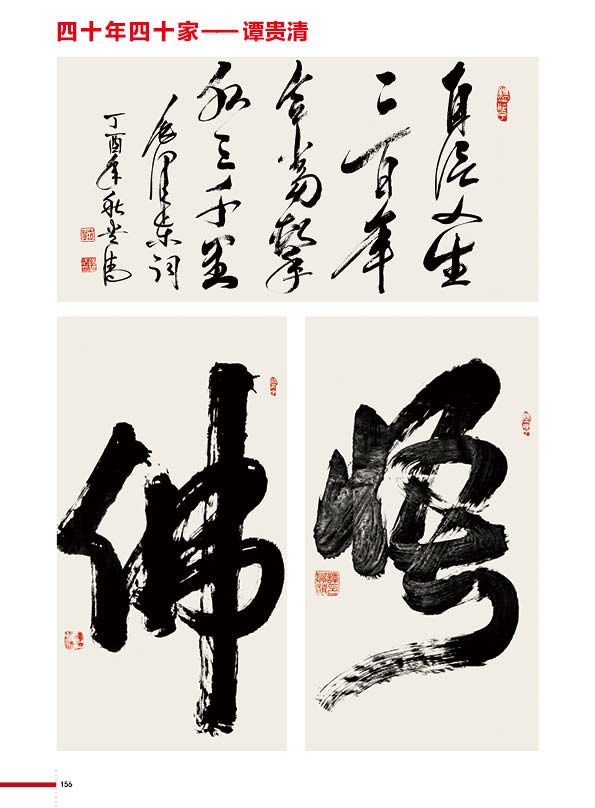 四十年四十家——谭贵清
自信人生
二百年
会当击
水三千里
毛泽东词
丁酉年秋贵清
佛
156